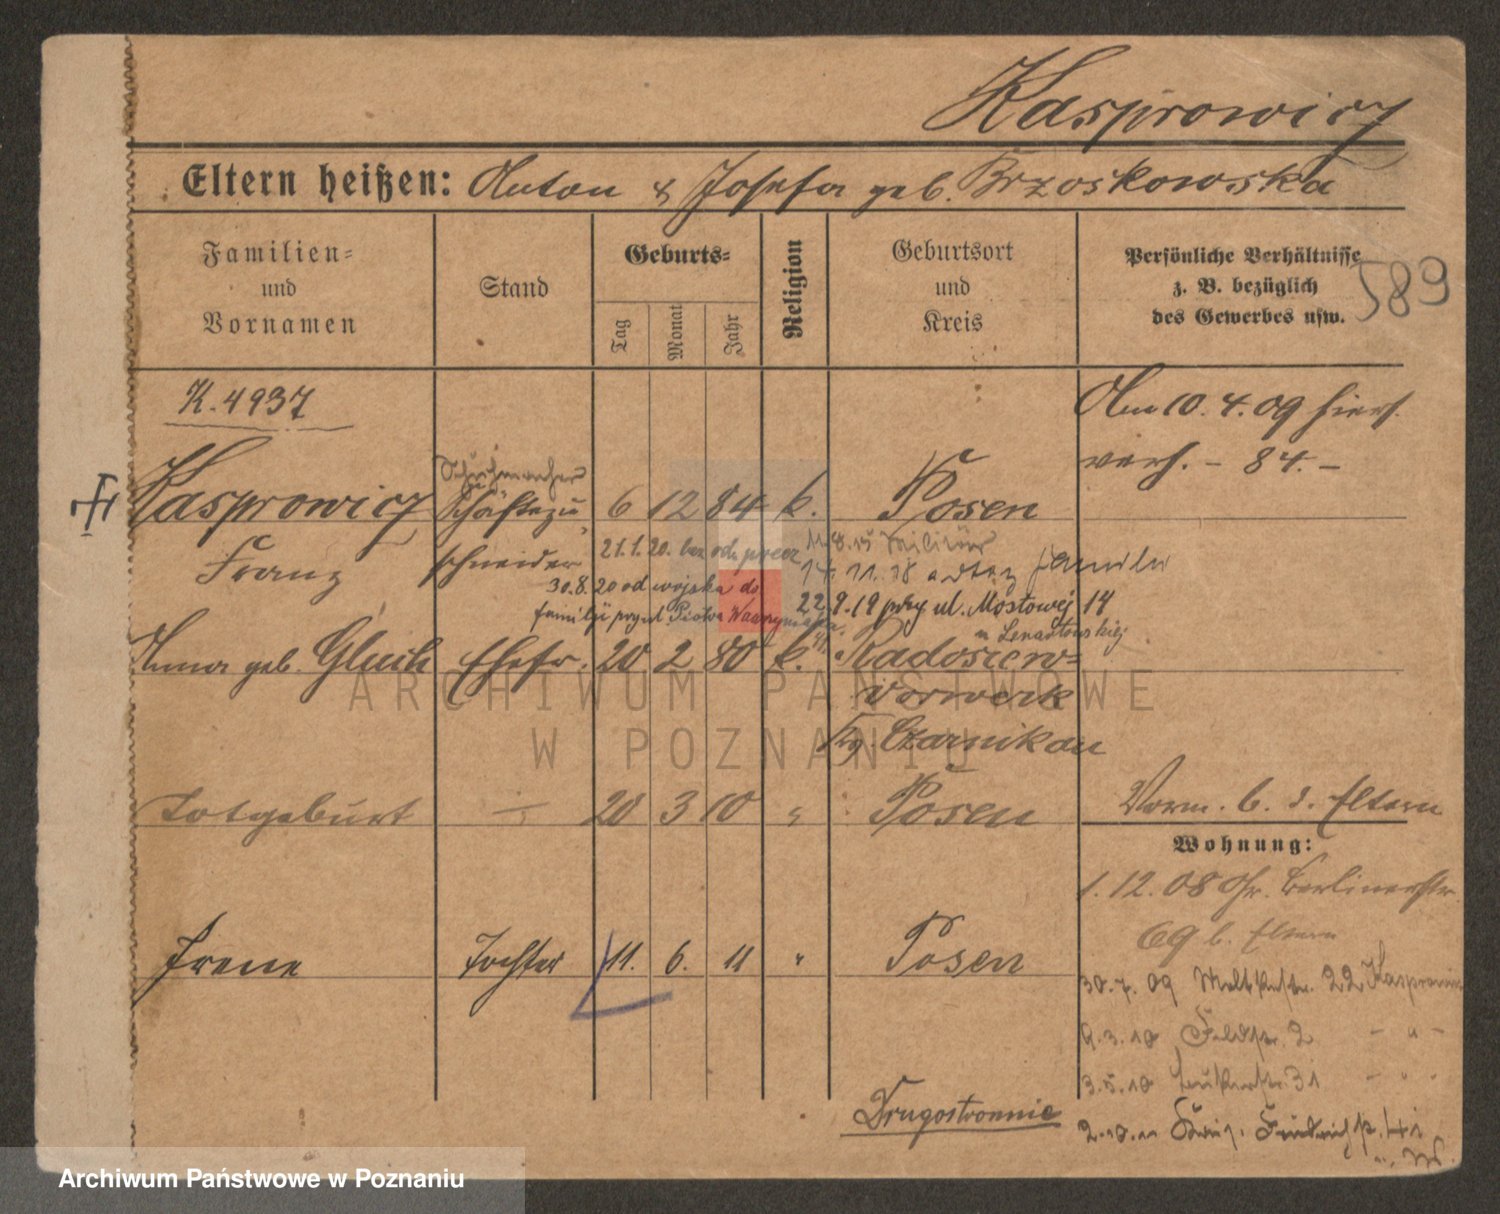 Kasprowicz
Eltern heißen: Anton & Josefa geb. Brzoskowska
Familien=
und
Vornamen
Stand
Geburts=
Tag
Monat
Jahr
Religion
Geburtsort
und
Kreis
Persönliche Verhältnisse
z. B. bezüglich
des Gewerbes usw.
589
K. 4937
Am 10.4.09 hiers.
verh. - 84. -
Kasprowicz
Schuhmacher
6 12 84 k. Posen
Franz
schneider
21.1.20. bez od. precz
11.8.15 Militär
14.11.18
30.8.20 od wojska do
familji przy ul Piotra Wawrzyniaka
22.9.19 przy ul. Mostowej 14
Anna geb. Gluch Ehefr. 20 2 80 k. Radosiew=
Vorwerk
Kr. Czarnikau
Totgeburt — 20 3 10 " Posen
Vorm. b. d. Eltern
Wohnung:
1.12.08 Gr. Berlinerstr.
69 b. Eltern
Irene Tochter 11. 6. 11 " Posen
30.7.09 Moltkestr. 22 Kasprowicz
9.3.10 Feldstr. 2 - " -
3.5.10 31 - " -
Drugostronnie
2.10.11
ARCHIWUM PAŃSTWOWE
W POZNANIU
Archiwum Państwowe w Poznaniu